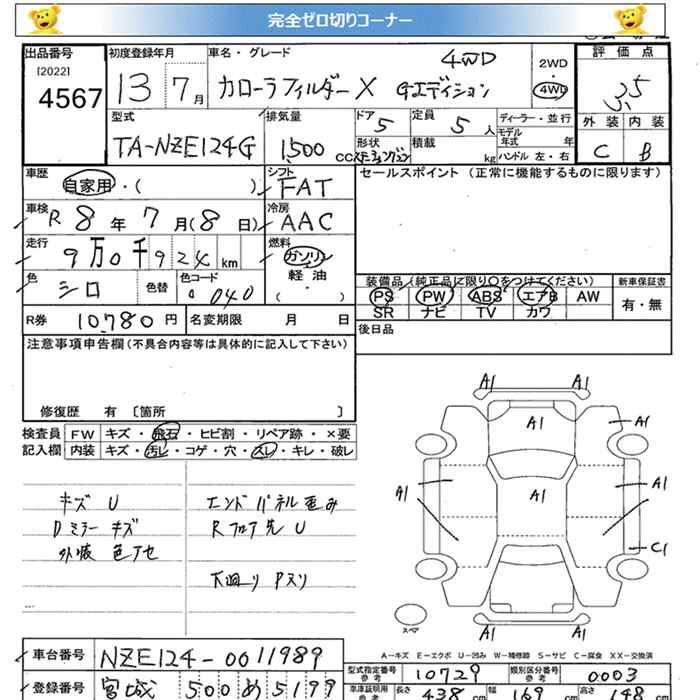 完全ゼロ切りコーナー
出品番号
[2022]
4567
初度登録年月
13 7月
車名・グレード
カローラフィルダー X Gエディション
4WD
2WD
・
4WD
評価点
3.5
外装 内装
C B
型式
TA-NZE124G
排気量
1,500
cc
ドア
5
定員
5人
形状
ステーションワゴン
積載
kg
ディーラー・並行
モデル年式 年
ハンドル 左・右
車歴
自家用・( )
シフト
FAT
セールスポイント (正常に機能するものに限ります)
車検
R 8年 7月(8日)
冷房
AAC
走行
9万0千924km
燃料
ガソリン
軽油
( ・ )
色
シロ
色替
色コード
040
装備品(純正品に限り○をつけてください)
新車保証書
PS PW ABS エアB AW
SR ナビ TV カワ
有・無
R券 10,780円
名変期限 月 日
後日品
注意事項申告欄(不具合内容等は具体的に記入して下さい)
修復歴 有 〔箇所 〕
検査員 FW キズ・飛石・ヒビ割・リペア跡・×要
記入欄 内装 キズ・汚レ・コゲ・穴・スレ・キレ・破レ
キズ U
Dミラーキズ
外装 色アセ
エンドパネル歪み
Rフロア先 U
下廻り Pスリ
A1 A1
A1 A1
A1 A1 A1
C1
A1 A1
スペア
A-キズ E-エクボ U-凹み W-補修跡 S-サビ C-腐食 XX-交換済
車台番号 NZE124-0011989
登録番号 宮城 500 め 5199
型式指定番号
参考
10729
類別区分番号
参考
0003
車庫証明用
参考
長さ 438cm 幅 169cm 高さ 148cm